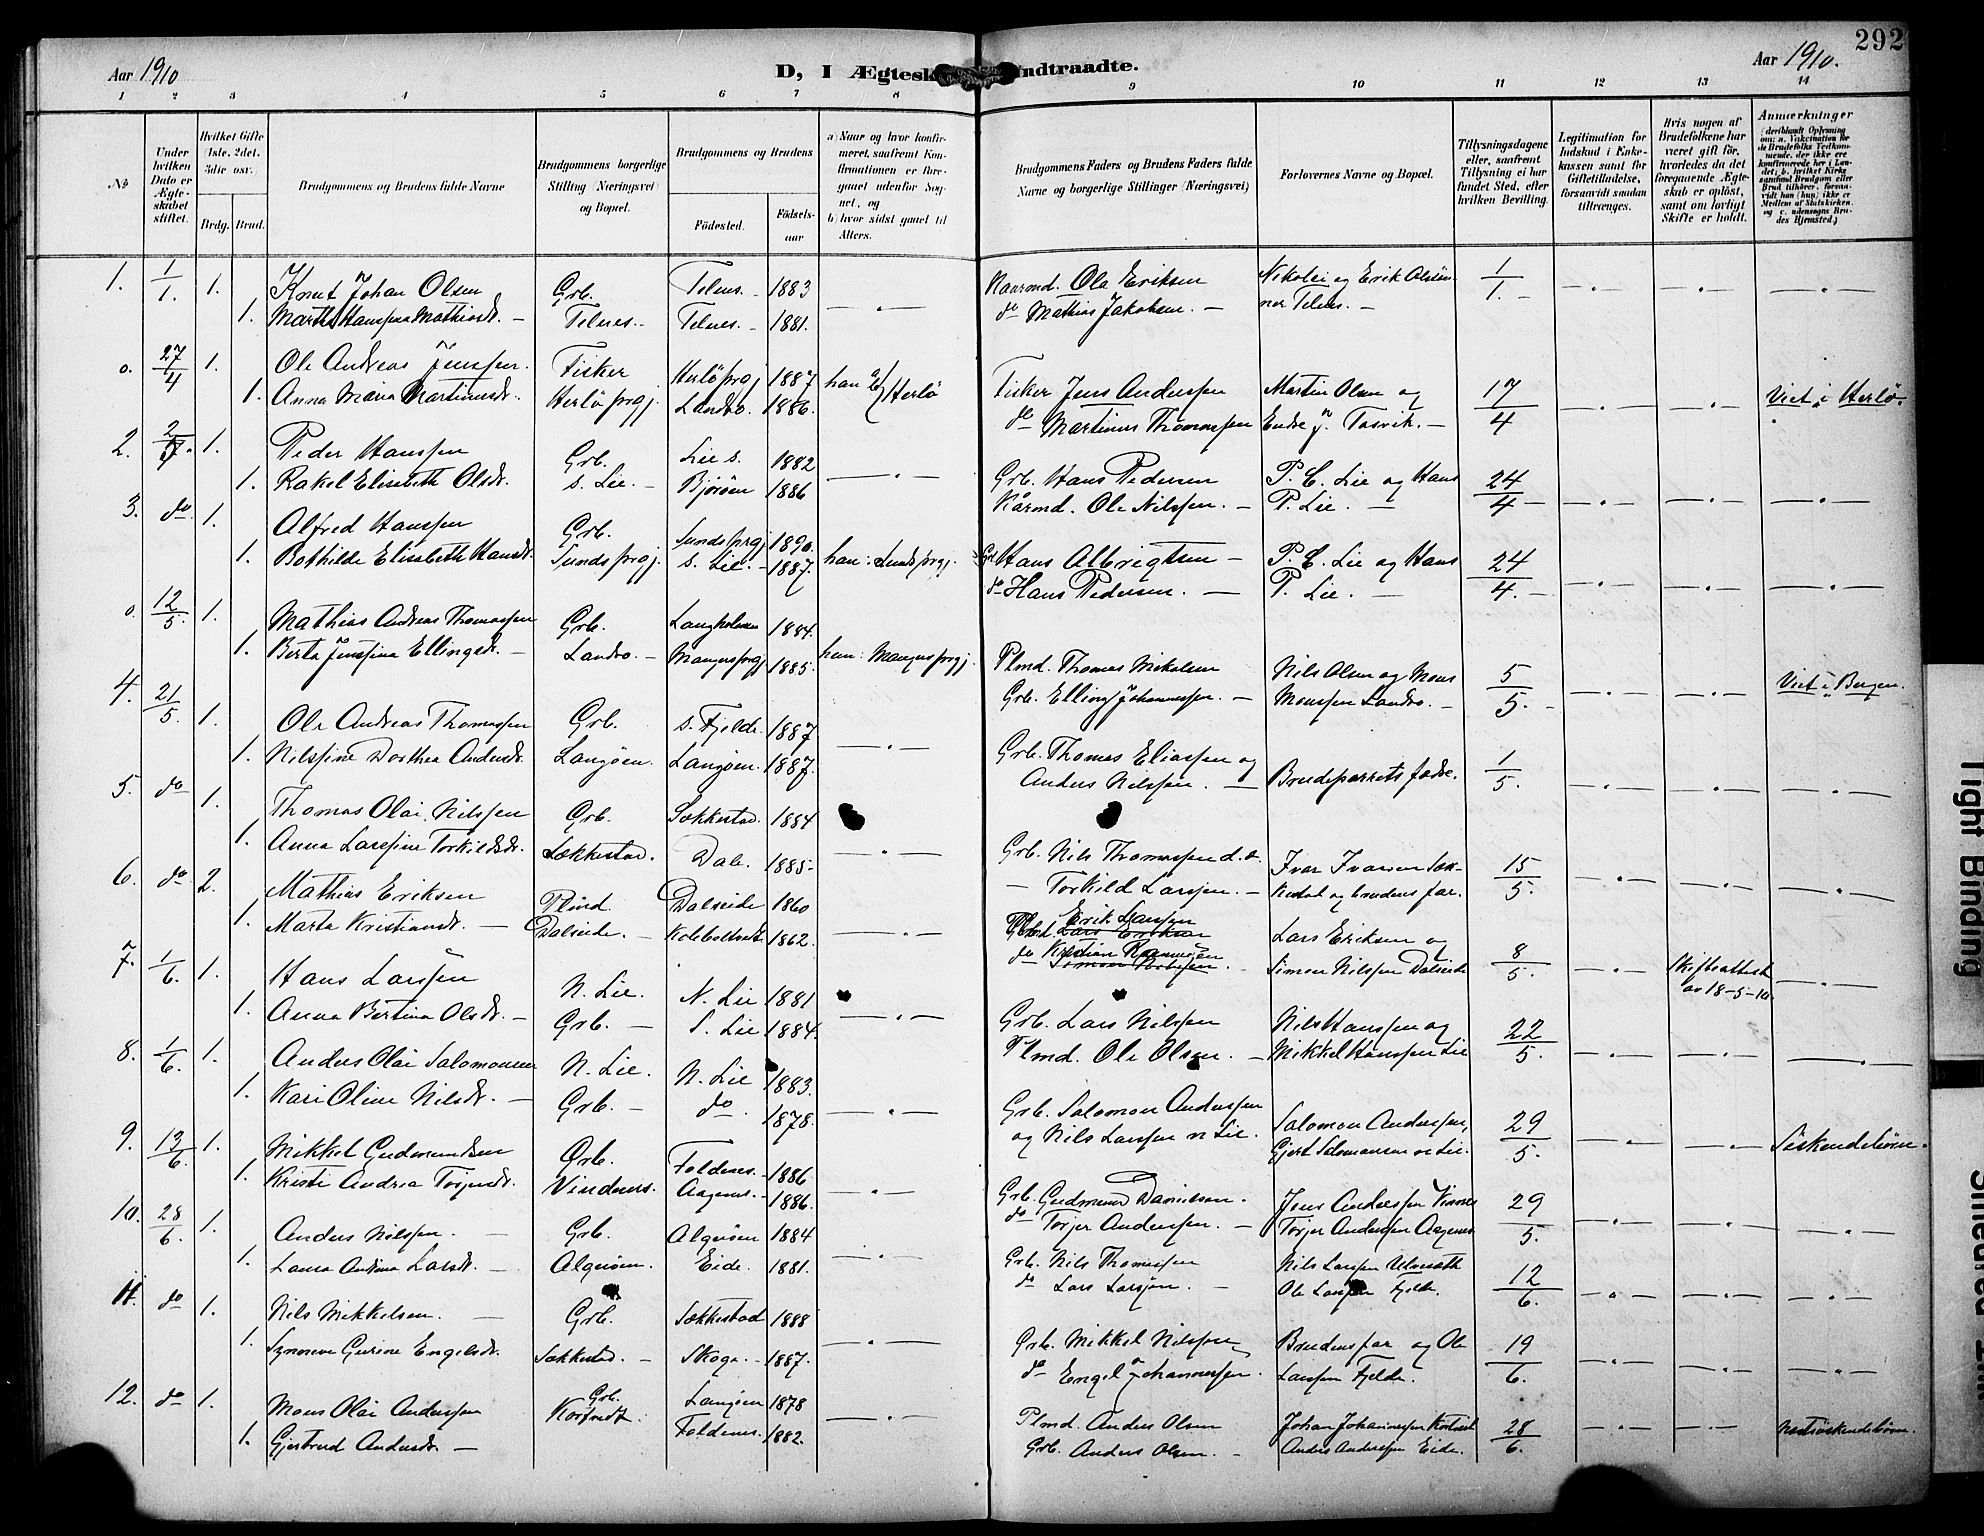 292
Aar 1910
D, I Ægtesk ndtraadte.
Aar 1910.
1 2 3 4 5 6 7 8 9 10 11 12 13 14
No
Under hvilken Dato er Ægteskabet stiftet.
Hvilket Gifte (1ste, 2det, 3die osv.)
Brdg. Brud.
Brudgommens og Brudens fulde Navne
Brudgommens borgerlige Stilling (Næringsvei) og Bopæl.
Brudgommens og Brudens
Fødested.
Fødselsaar
a) Naar og hvor konfirmeret, saafremt Konfirmationen er foregaaet udenfor Sognet, og
b) hvor sidst gaaet til Alters.
Brudgommens Faders og Brudens Faders fulde Navne og borgerlige Stillinger (Næringsvei)
Forlovernes Navne og Bopæl.
Tillysningsdagene eller, saafremt Tillysning ei har fundet Sted, efter hvilken Bevilling.
Legitimation for Indskud i Enkekassen samt for Giftetilladelse, forsaavidt saadan tiltrænges.
Hvis nogen af Brudefolkene har været gift før, hvorledes da det foregaaende Ægteskab er opløst, samt om lovligt Skifte er holdt.
Anmærkninger
1. 1/1. 1. Knut Johan Olsen Grb. Telnes. 1883 Ola Eriksen Nikolai og Erik Olsön- 1/1.
1. Hanssina Mathiasdr. Telnes. Telnes. 1881. do Mathias Jakobsen. ner Telnes.
o. 27/4 1. Ole Andreas Jenssen. Fisker Herlö prgj. 1887 han Herlö Fisker Jens Anderssen Martin Olsen og 17/4 Viet i Herlö.
1. Anna Maria Martinusdr. Herlö prgj. Landro. 1886. do Martinus Thomassen Endre J. Tosvik.
2. 1. Peder Hanssen Grb. Lie s. 1882 Grb. Hans Pedersen P. C. Lie og Hans 24/4
1. Rakel Elisebeth Olsdr. s. Lie. Björöen 1886 Kårmd. Ole Nilssen. P. Lie.
3. do 1. Alfred Hanssen Grb. Sunds prgj. 1890. han: Sunds prgj. Hans Albrigtsen P. C. Lie og Hans 24/4.
1. Bothilde Elisabeth Hansdr. Sunds prgj. s. Lie. 1887. do Hans Pedersen. P. Lie.
o. 12/5 1. Mathias Andreas Thomassen Grb. Langholmen 1884. han: Mangers prgj. Plmd. Thomas Mikalsen Nils Olsen og Mons 5/5. Viet i Bergen.
1. Berta Jenssina Ellingsdr. Landro. Mangers prgj. 1885. Grb. Elling Johannessen. Monssen Landro.
4. 21/5. 1. Ole Andreas Thomassen Grb. s. Fjelde. 1887 Grb. Thomas Eliassen og Brudeparrets fædre. 1/5.
1. Nilssine Dorthea Andersdr. Langöen. Langöen. 1887. Anders Nilssen.
5. do 1. Thomas Olai Nilssen Grb. Sækkestad. 1884 Grb. Nils Thomassen Ivar Ivarsen Sæk- 15/5.
1. Anna Larssine Torkildsdr. Sækkestad. Dale. 1885. Torkild Larssen. kestad og brudens far.
6. do 2. Mathias Eriksen Plmd. Dalseide 1860 Erik Larssen Lars Eriksen og 8/5. Skifteattest
1. Marta Kristiansdr. Dalseide. 1862. do Kristian Rasmussen Simon Nilssen Dalseide av 18-5-10.
7. 1/6. 1. Hans Larssen N. Lie. N. Lie 1881 Grb. Lars Nilssen Nils Hanssen og 22/5.
1. Anna Bertina Olsdr. Grb. S. Lie 1884. Plmd. Ole Olsen. Mikkel Hanssen Lie
8. 1/6. 1. Anders Olai Salomonsen N. Lie. N. Lie 1883. Grb. Salomon Anderssen Salomon Anderssen, 29/5. Söskendebörn.
1. Kari Oline Nilsdr. Grb. do. 1878. og Nils Larssen n Lie. Gjert Salomonsen n Lie.
9. 13/6. 1. Mikkel Gudmundsen Grb. Foldenes. 1886 Grb. Gudmund Danielsen. Jens Anderssen Vinnes 29/5.
1. Kristi Andrea Torjersdr. Vindenes. Aagenes. 1886. do Torjer Anderssen. Torjer Anderssen Aagenes
10. 28/6. 1. Anders Nilssen. Grb. Algröen 1884 Grb. Nils Thomassen Nils Larssen 12/6.
1. Laura Larsdr. Algröen. Eide. 1881. do Lars Larssen. Ole Larssen Fjelde.
11. do 1. Nils Mikkelsen. Grb. Sækkestad 1888 Grb. Mikkel Nilssen Brudens far og Ole 19/6.
1. Synneva Gurine Engelsdr. Sækkestad. Skoge. 1887. do Engel Johannessen. Larssen Fjelde.
12. do 1. Mons Olai Anderssen Grb. Langöen 1878 Plmd. Anders Olsen Johan Johannessen 28/6. Næstsöskendebörn.
1. Gjertrud Andersdr. Foldenes. 1882. Grb. Anders Olsen. Anders Anderssen Eide.
Tight Binding